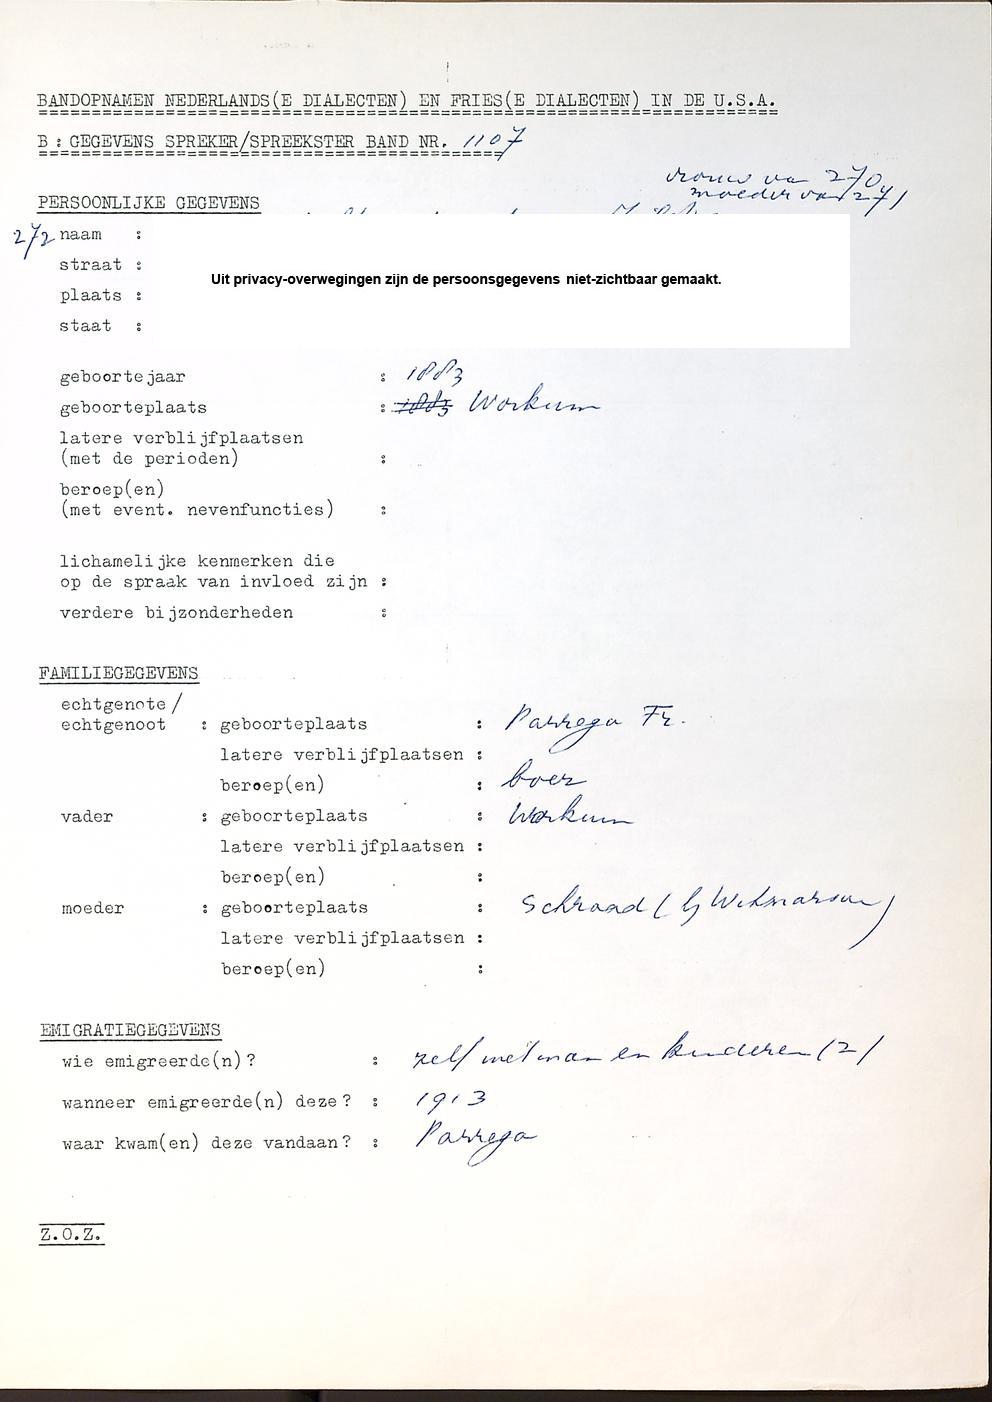 BANDOPNAMEN NEDERLANDS(E DIALECTEN) EN FRIES(E DIALECTEN) IN DE U.S.A.
B : GEGEVENS SPREKER/SPREEKSTER BAND NR. 1107
vrouw van 270
moeder van 271
PERSOONLIJKE GEGEVENS
272 naam :
straat :
Uit privacy-overwegingen zijn de persoonsgegevens niet-zichtbaar gemaakt.
plaats :
staat :
geboortejaar : 1883
geboorteplaats : 1883 Workum
latere verblijfplaatsen
(met de perioden) :
beroep(en)
(met event. nevenfuncties) :
lichamelijke kenmerken die
op de spraak van invloed zijn :
verdere bijzonderheden :
FAMILIEGEGEVENS
echtgenote/
echtgenoot : geboorteplaats : Parrega Fr.
latere verblijfplaatsen :
beroep(en) : boer
vader : geboorteplaats : Workum
latere verblijfplaatsen :
beroep(en) :
moeder : geboorteplaats : Schraad (bij Witmarsum)
latere verblijfplaatsen :
beroep(en) :
EMIGRATIEGEGEVENS
wie emigreerde(n)? : zelf met man en kinderen (2)
wanneer emigreerde(n) deze? : 1913
waar kwam(en) deze vandaan? : Parrega
Z.O.Z.